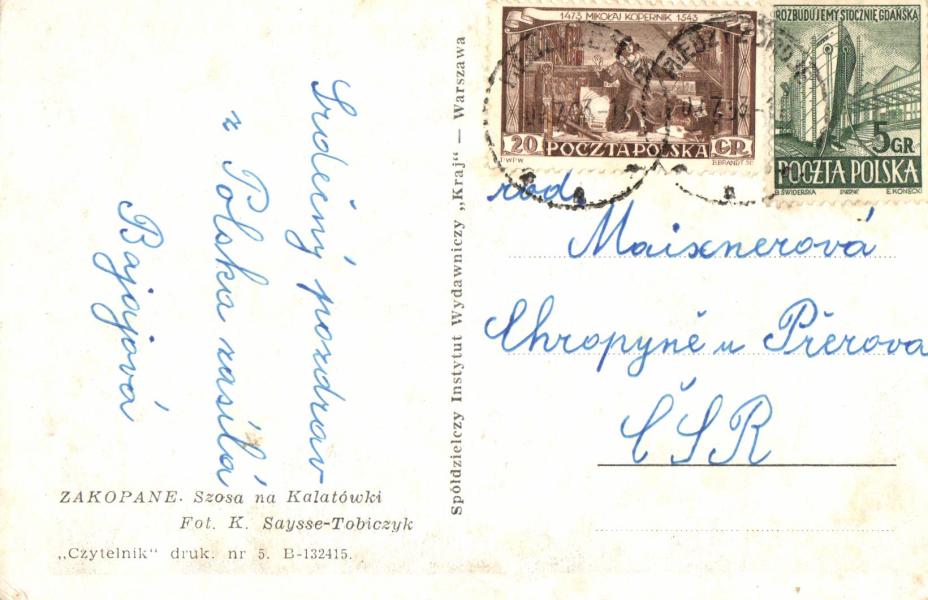 1473 MIKOŁAJ KOPERNIK 1543
20 POCZTA POLSKA GR.
P.W.P.W. B.BRANDT SC.
ROZBUDUJEMY STOCZNIĘ GDAŃSKA
5 GR
POCZTA POLSKA
B. ŚWIDERSKA P.W.P.W. E. KONECKI
Srdečný pozdrav
z Polska zasílá
Bajajová
Spółdzielczy Instytut Wydawniczy „Kraj" — Warszawa
rod.
Maixnerová
Chropyně u Přerova
ČSR
ZAKOPANE. Szosa na Kalatówki
Fot. K. Saysse-Tobiczyk
„Czytelnik" druk. nr 5. B-132415.